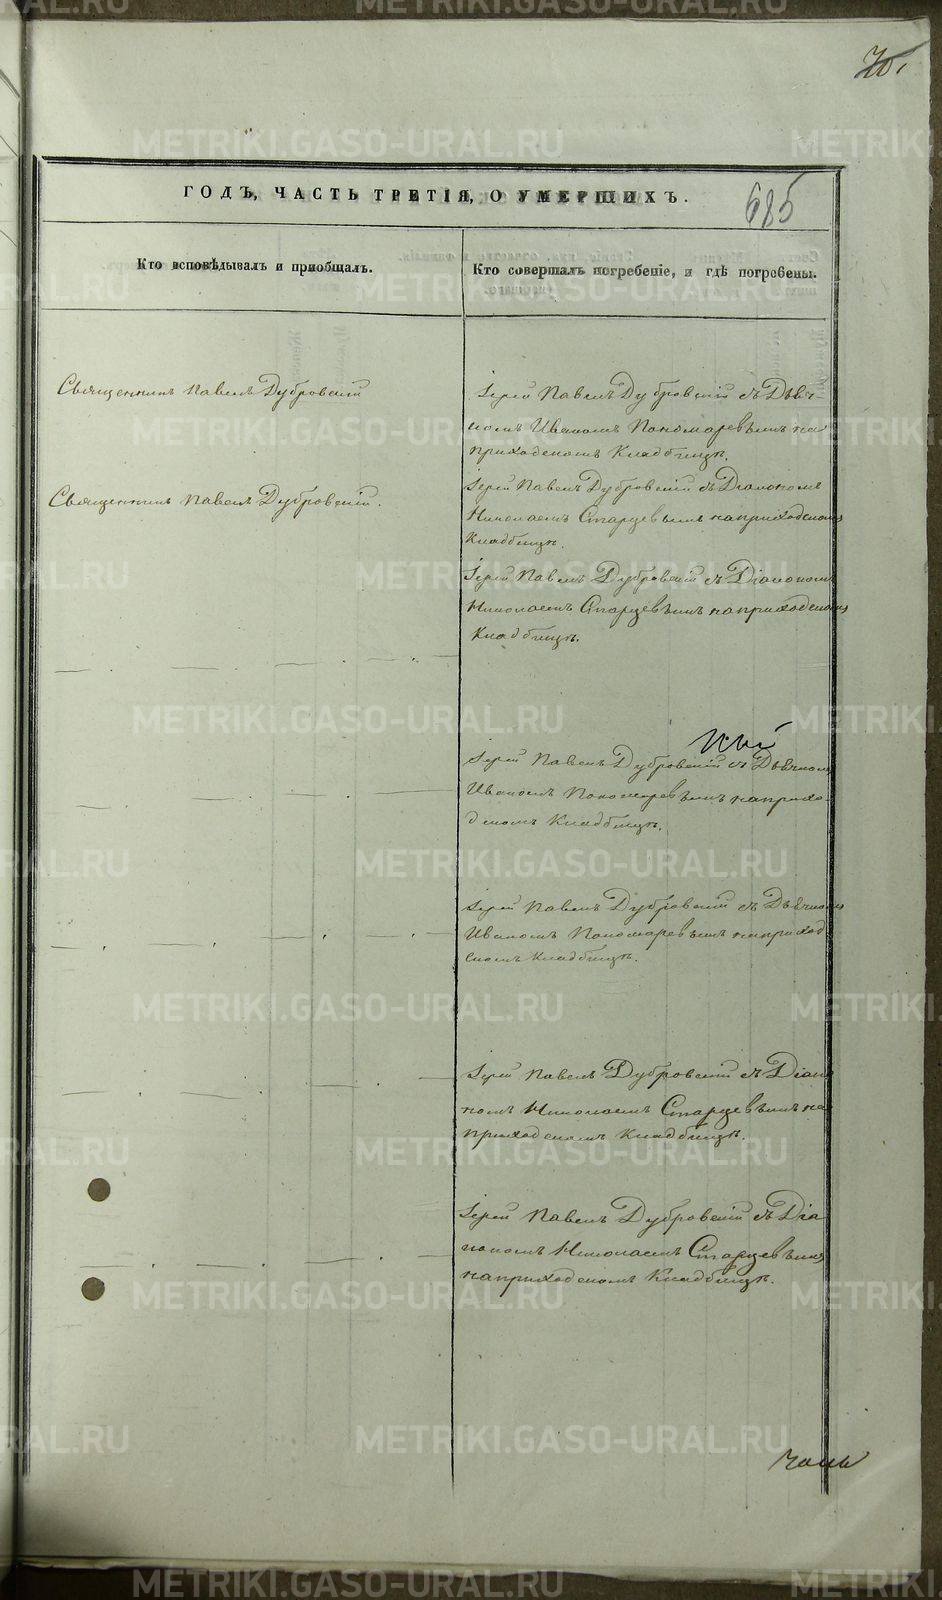 70.
ГОДЪ, ЧАСТЬ ТРЕТІЯ, О УМЕРШИХЪ.
685
Кто исповѣдывалъ и пріобщалъ.
Кто совершалъ погребеніе, и гдѣ погребены.
Священникъ Павелъ Дубровскій
Іерей Павелъ Дубровскій съ Дьяч-
комъ Иваномъ Пономаревымъ на
приходскомъ Кладбищѣ.
Священникъ Павелъ Дубровскій.
Іерей Павелъ Дубровскій съ Діакономъ
Николаемъ Старцевымъ на приходскомъ
Кладбищѣ.
Іерей Павелъ Дубровскій съ Діакономъ
Николаемъ Старцевымъ на приходскомъ
Кладбищѣ.
Іерей Павелъ Дубровскій съ Дьячкомъ
Иваномъ Пономаревымъ на прихо-
дскомъ Кладбищѣ.
Іерей Павелъ Дубровскій съ Дьячкомъ
Иваномъ Пономаревымъ на приход
скомъ Кладбищѣ.
Іерей Павелъ Дубровскій съ Діако
номъ Николаемъ Старцевымъ на
приходскомъ Кладбищѣ.
Іерей Павелъ Дубровскій съ Діа
кономъ Николаемъ Старцевымъ
на приходскомъ Кладбищѣ.
METRIKI.GASO-URAL.RU